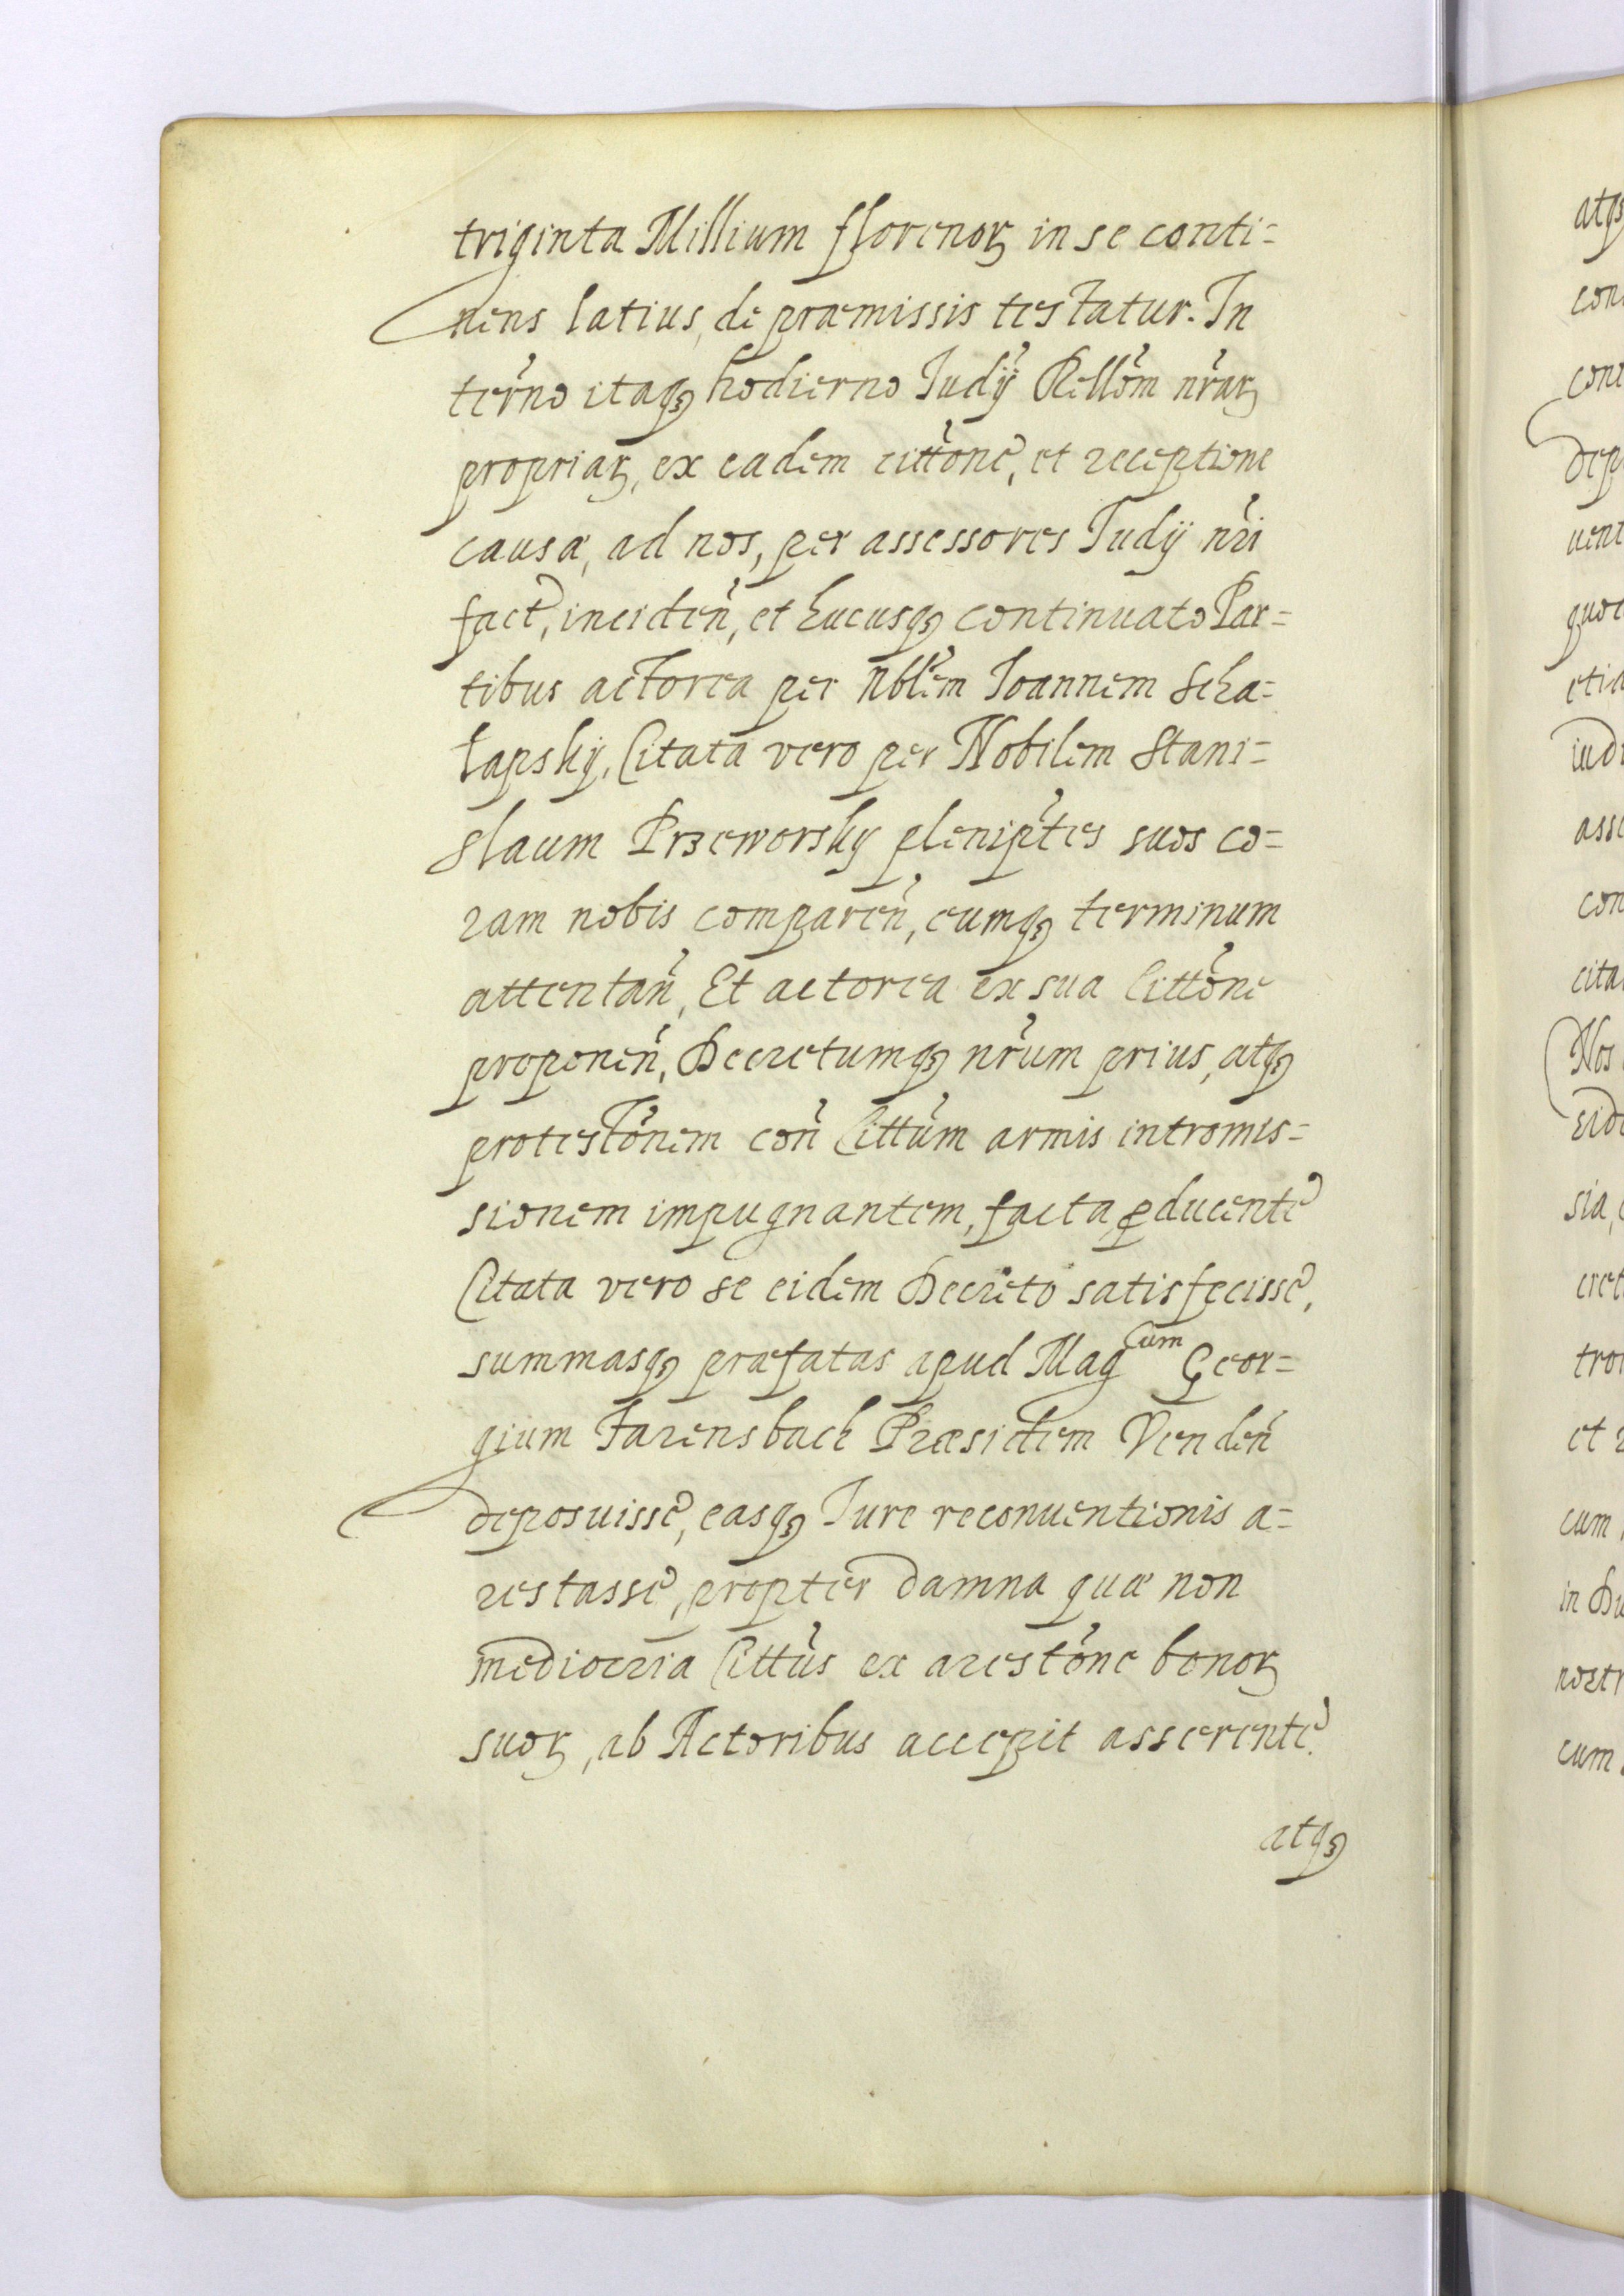 triginta Millium fflorenoꝝ in se conti=
nens latius, de præmissis testatur. In
term̃no itaqꝫ hodierno Judỹ Rellõm nr̃aꝝ
propriaꝝ, ex eadem cittõne, et receptione
causæ, ad nos, per assessores Judÿ nr̃i
fact̃, inciden̄, et hucusqꝫ continuato Par=
tibus actorea per Nbl̃em Joannem Scha=
łapskÿ, Citata vero per Nobilem Stani=
slaum Przeworsky plenip̃tes suos co=
ram nobis comparen̄, eumqꝫ terminum
attentan̄, Et actorea ex sua Cittõne
proponen̄, Decretumqꝫ nr̃um prius, atqꝫ
protestõnem con̄ Cittũm armis intromis=
sionem impugnantem, facta, ꝓducente
Citata vero se eidem Decreto satisfecisse,
summasqꝫ præfatas apud Mag^cum Geor=
gium Farensbach Præsidem Venden̄
deposuisse, easqꝫ Jure reconuentionis a=
restasse, propter damna quæ non
mediocria Cittũs ex arestõne bonoꝝ
suoꝝ, ab Actoribus accepit asserente.
atqꝫ
atqꝫ
con
dep
uent
quod
etia
iudi
asse
con
cita
Nos
eide
sia,
cret
tro
et
cum
in Du
nostr
cum